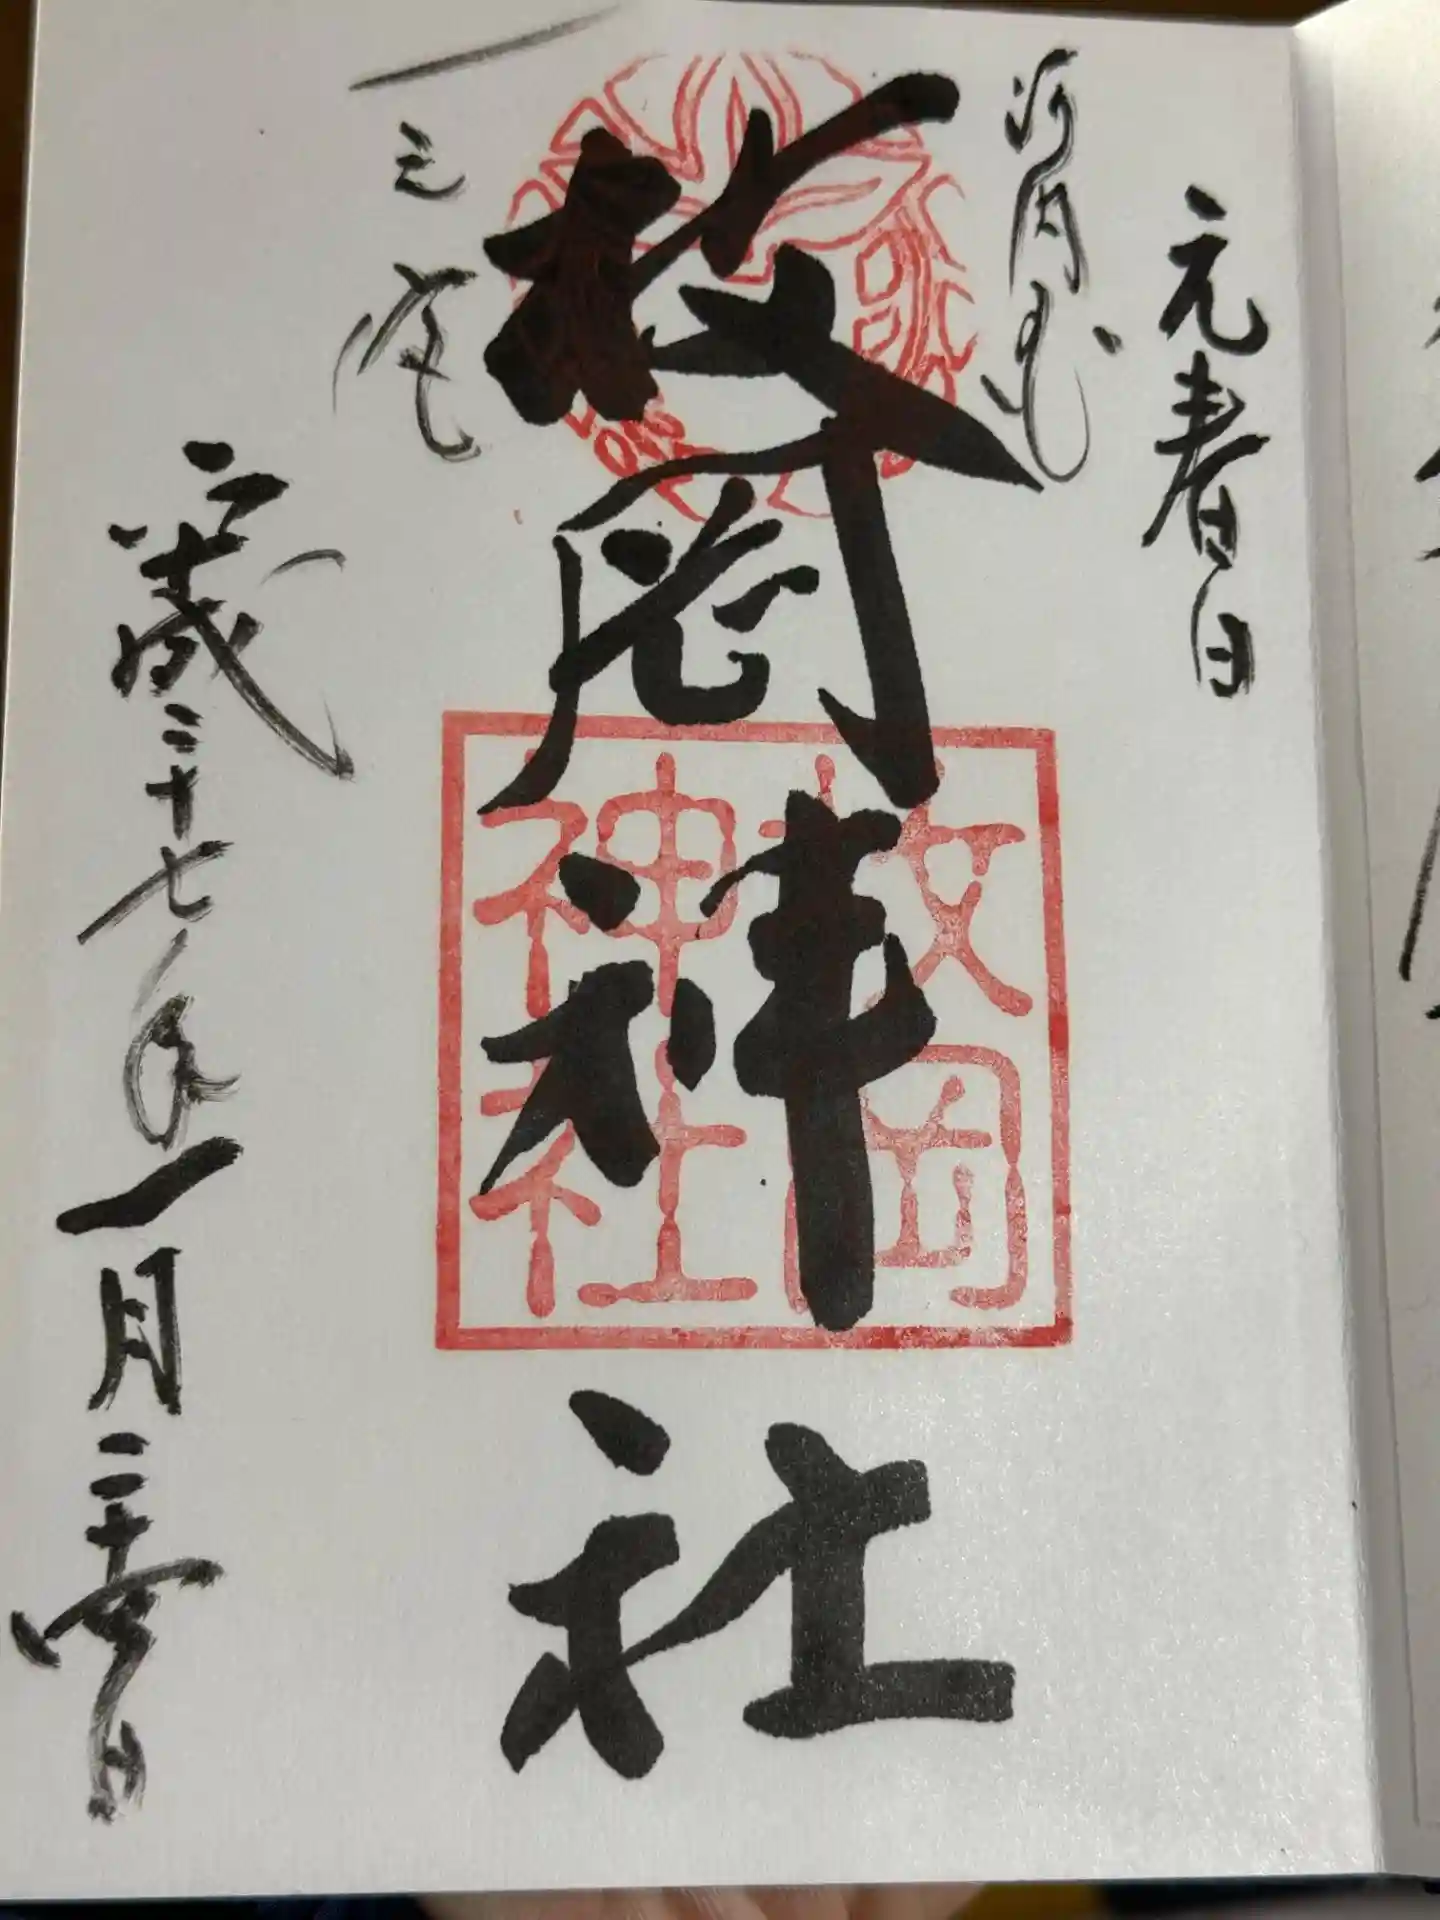 元春日
河内国
一之宮
枚岡神社
枚岡
神社
平成二十七年一月二十四日